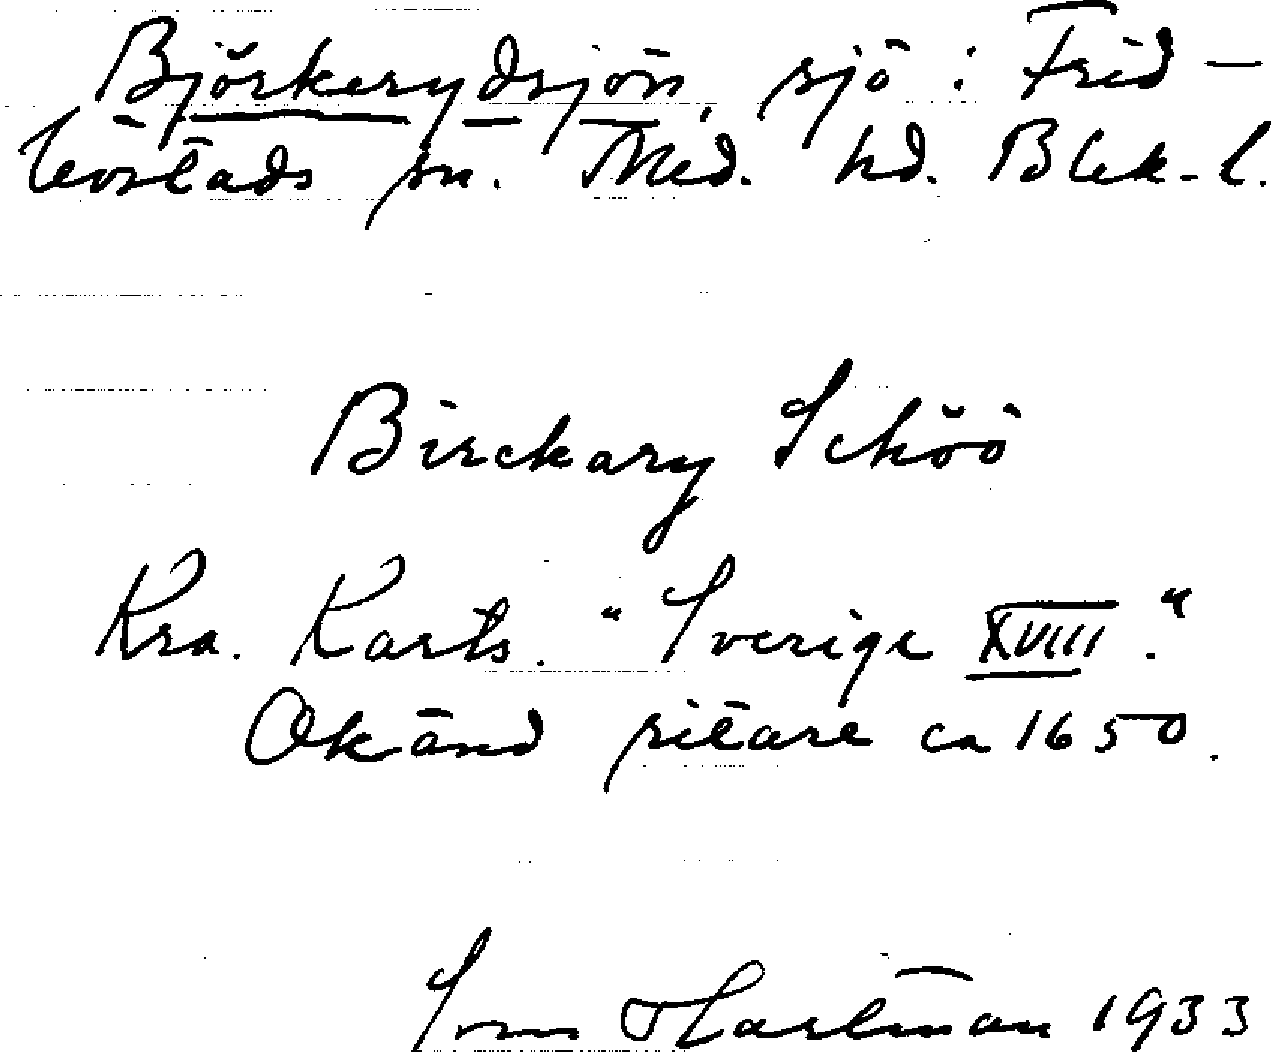 Björkerydsjön, sjö i Frid-
levstads sn. Med. hd. Blek. l.
Birckary Schöö
Kra. Karts. "Sverige XVIII."
Okänd ritare ca 1650.
Hartman 1933